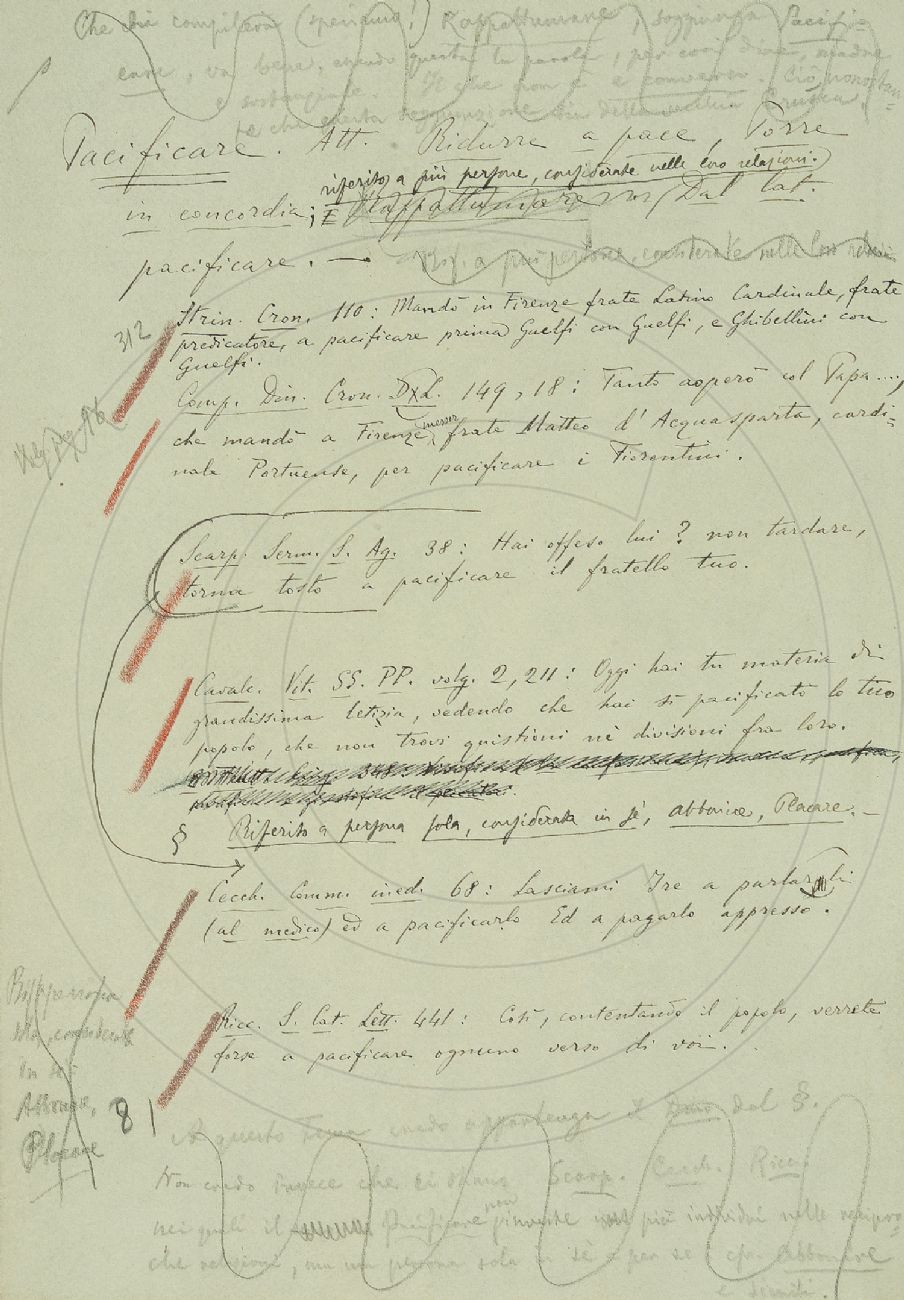 Che chi compilerà (speriamo!) Rappattumare, soggiunga Pacifi-
care, va bene; essendo questa la parola, per così dire, madre
e sostanziale. Il che non è e converso. Ciò nonostan-
te che questa soggiunzione sia della vecchia Crusca.
Pacificare. Att. Ridurre a pace, Porre
riferito a più persone, considerate nelle loro relazioni.
in concordia; E Rappattumare (Dal lat.
pacificare. —
Rif. a più persone, considerate nelle loro relazioni
312
Strin. Cron. 110: Mandò in Firenze frate Latino Cardinale, frate
predicatore, a pacificare prima Guelfi con Guelfi, e Ghibellini con
Guelfi.
Comp. Din. Cron. DxL. 149, 18: Tanto aoperò col Papa....,
che mandò a Firenze messer frate Matteo d'Acquasparta, cardi-
nale Portuense, per pacificare i Fiorentini.
Scarp. Serm. S. Ag. 38: Hai offeso lui? non tardare,
torna tosto a pacificare il fratello tuo.
Cavalc. Vit. SS. PP. volg. 2, 211: Oggi hai tu materia di
grandissima letizia, vedendo che hai sì pacificato lo tuo
popolo, che non trovi quistioni nè divisioni fra loro.
§ Riferito a persona sola, considerata in sè, Abbonire, Placare. —
Cecch. Comm. ined. 68: Lasciami Ire a parlargli
(al medico) ed a pacificarlo Ed a pagarlo appresso.
Ricc. S. Cat. Lett. 441: Così, contentando il popolo, verrete
forse a pacificare ognuno verso di voi.
Rif. a persona
sola, considerata
in sè:
Abbonire,
Placare
81
A questo Tema credo appartenga il Dino dal §.
Non credo invece che ci stiano Scarp. Cecch. Ricc.
nei quali il Pacificare non più individui nelle recipro-
che relazioni, ma una persona sola in sè e per sè: cfr. Abbonire
e simili.